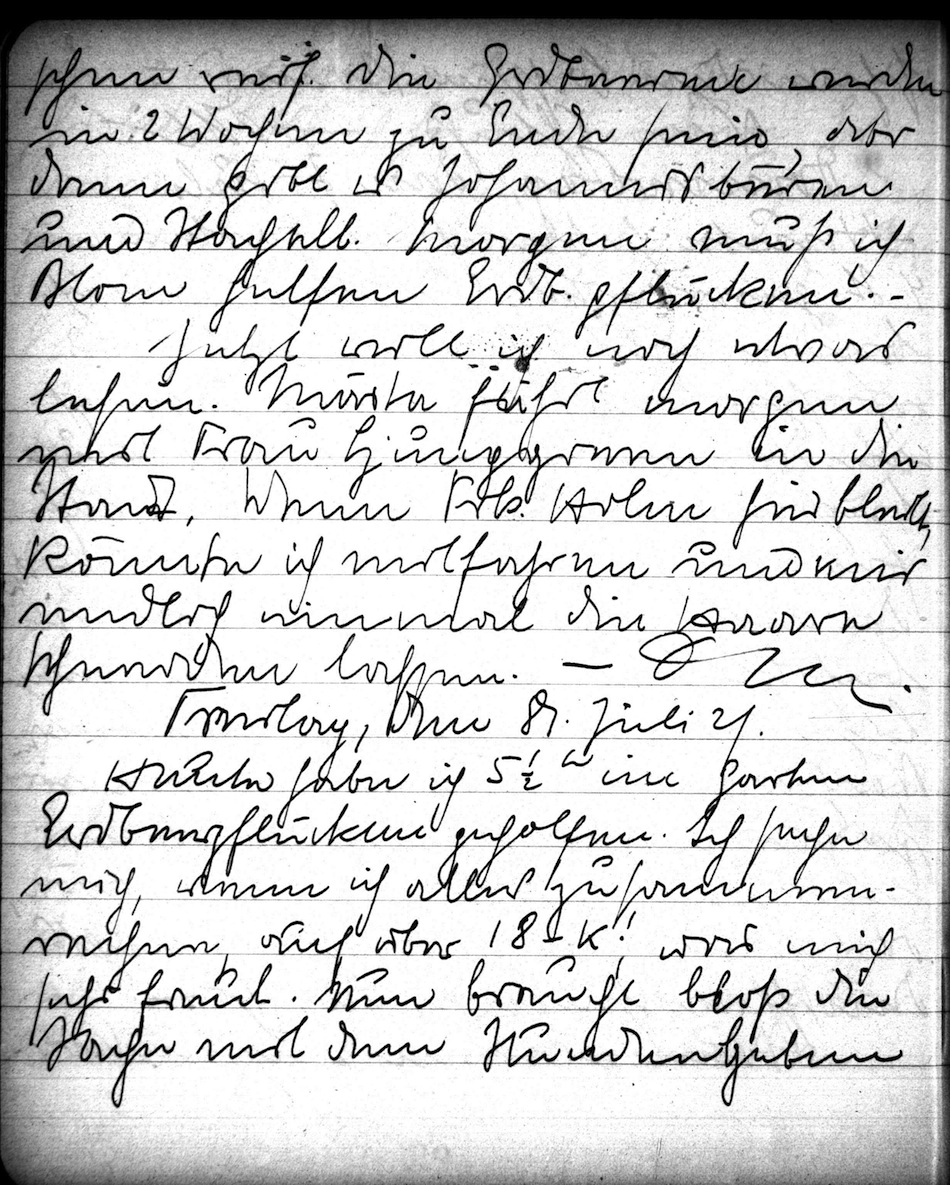 schon reif. Die Erdbeeren werden
in 2 Wochen zu Ende sein, aber
dann gibt es Johannisbeeren
und Stachelb. Morgen muß ich
Blom helfen Erdb. pflücken. -
Jetzt will ich noch etwas
lesen. Märta fährt morgen
mit Frau Ljunggreen in die
Stadt. Wenn Frk. Holm hier bleibt,
könnte ich mitfahren und mir
endlich einmal die Haare
schneiden lassen. —
Freitag, den 8. Juli 21.
Heute habe ich 5½ im Garten
Erdbeerpflücken geholfen. Ich sehe
mich, wenn ich alles zusammen-
rechne, auf über 18 - K! was mich
sehr freut. Nun braucht bloß die
Sache mit dem Stundengeben